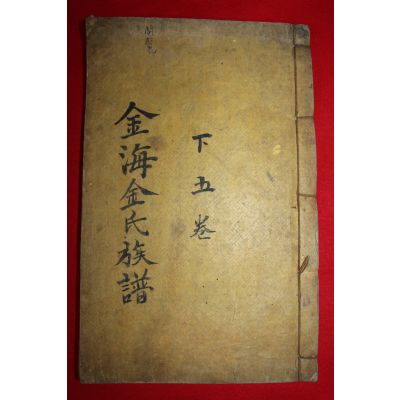 金海金氏族譜
下五卷